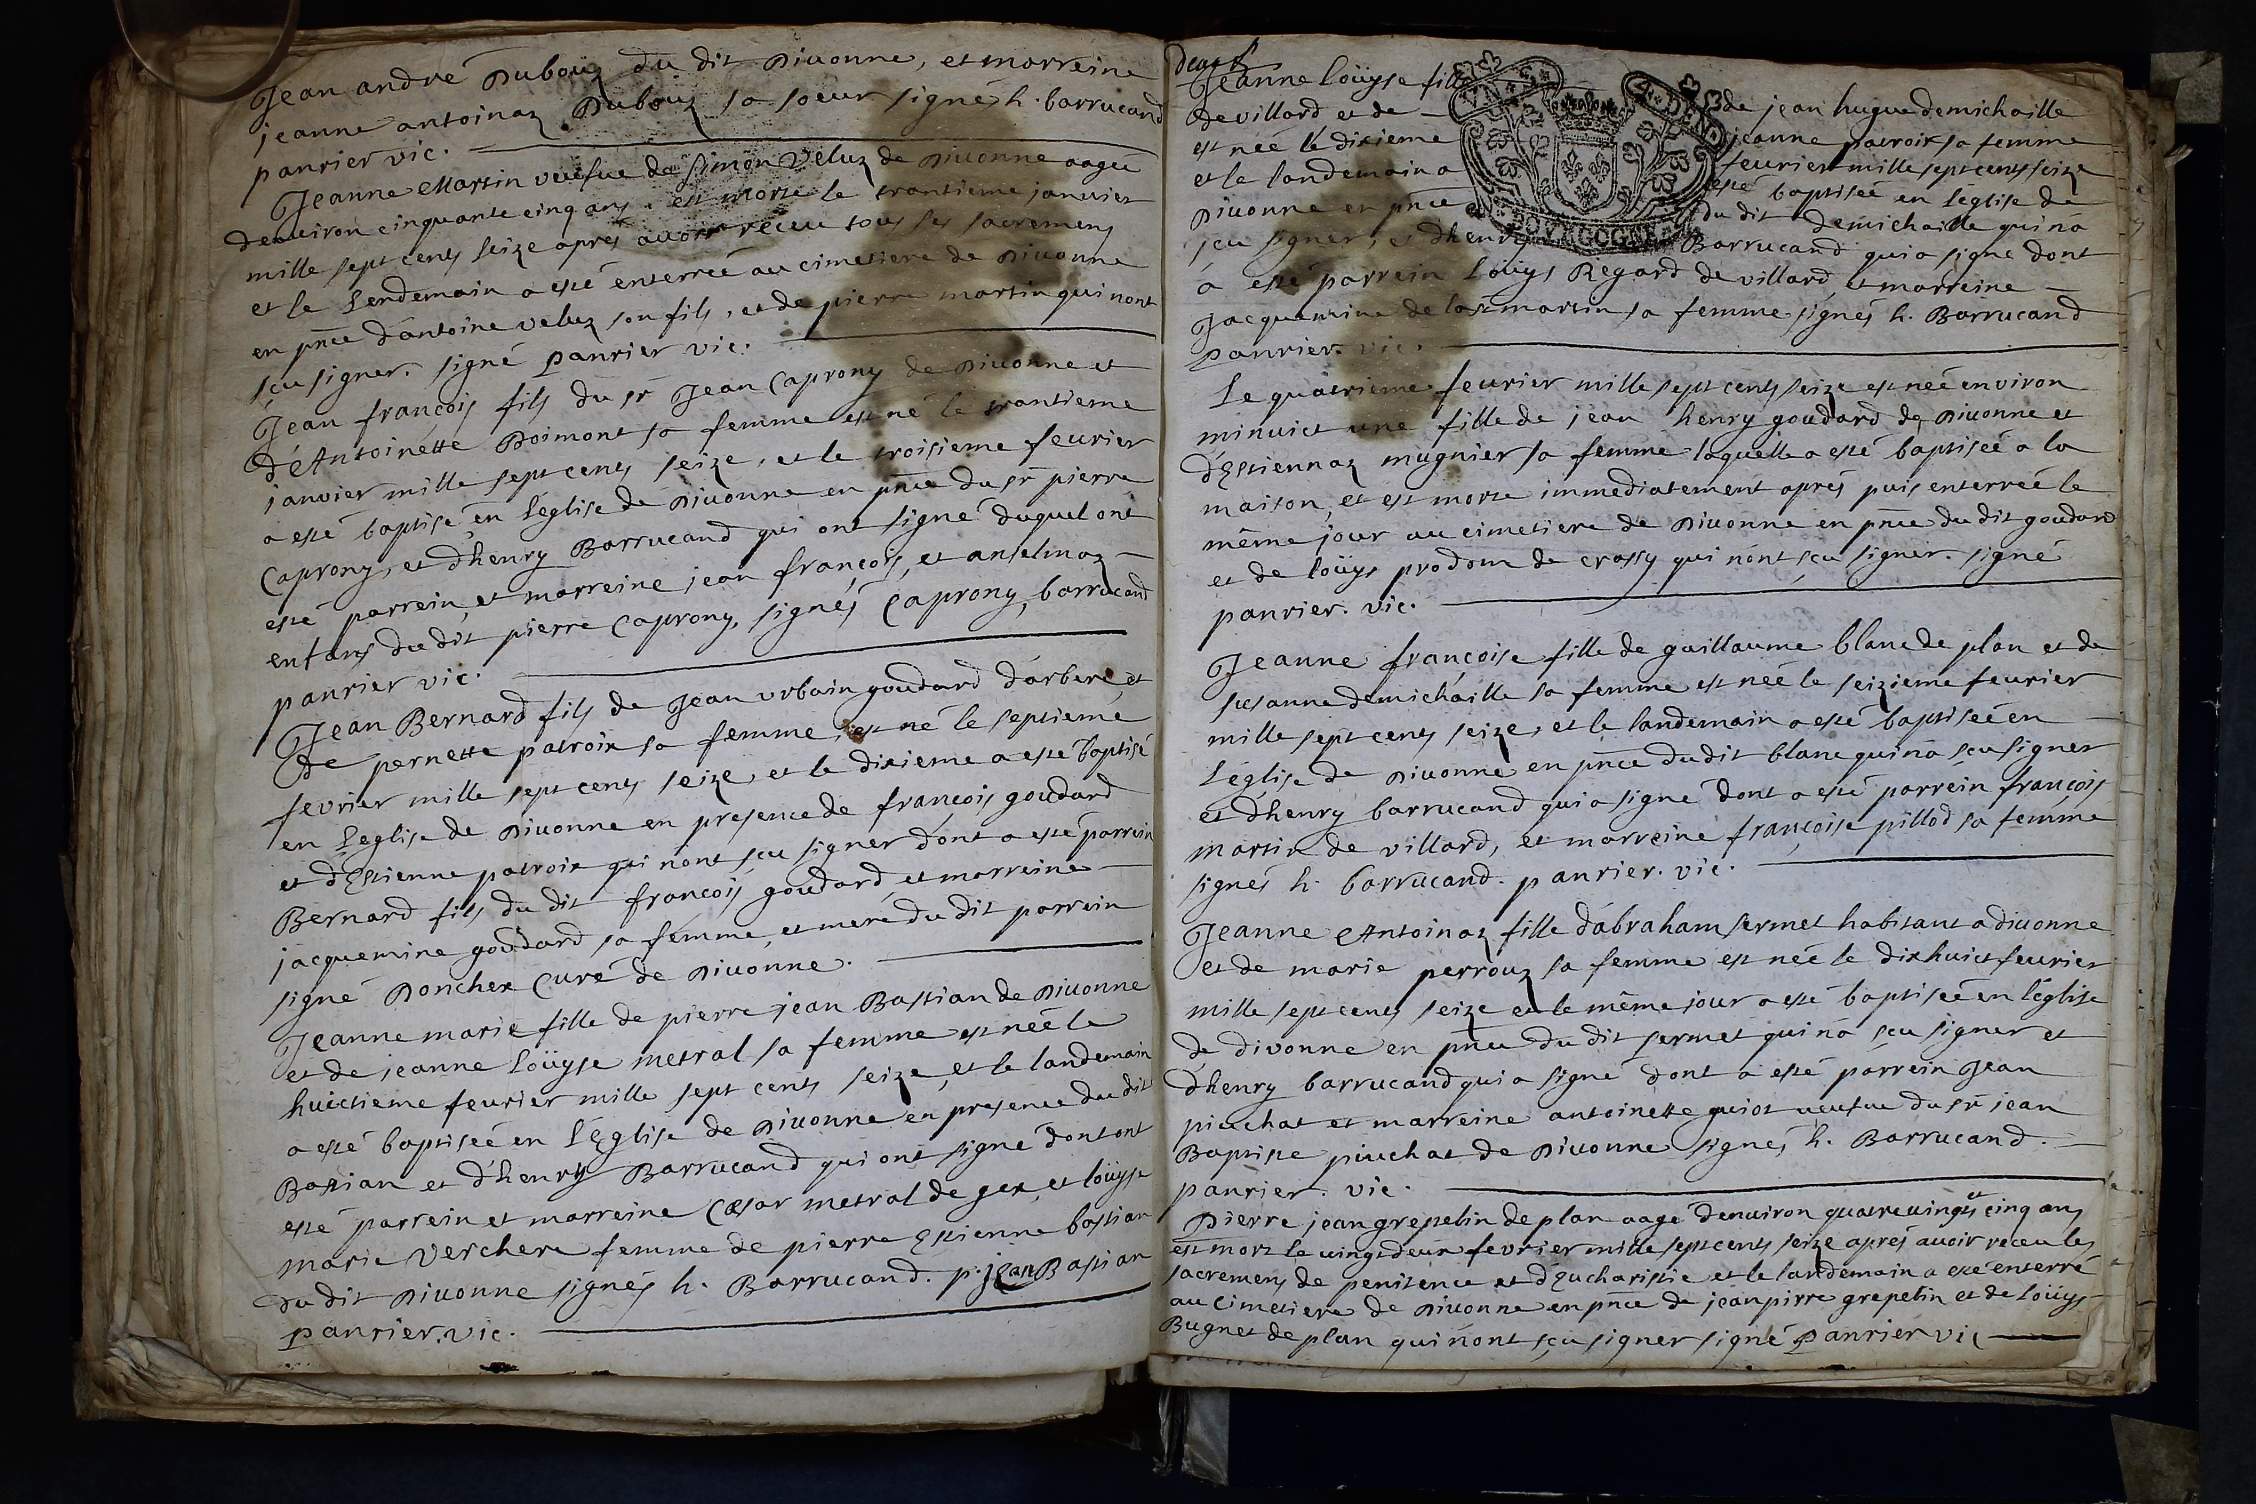 Jean andre Dubouz du dit Divonne, et marreine
jeanne antoinaz Dubouz sa soeur signés h. barrucand
panrier vic.
Jeanne Martin veufue de Simon Veluz de Divonne aagée
denuiron cinquante cinq ans, est morte le trantieme januier
mille sept cents seize apres auoir receu tous ses sacremens
et le lendemain a esté enterreé au cimetiere de Diuonne
en pñce d'antoine veluz son fils, et de pierre martin qui nont
sçu signer. signé panrier vic.
Jean francois fils du sr Jean Caprony de Diuonne et
d'Antoinette Doimont sa femme est né le trantieme
janvier mille sept cents seize, et le troisieme feurier
a esté baptisé en l'église de Diuonne en pñce du sr pierre
Caprony, et d'henry Barrucand qui ont signé duquel ont
esté parrein, et marreine jean françois, et anselmaz
enfans du dit pierre Caprony, signés Caprony, barrucand
panrier vic.
Jean Bernard fils de Jean urbain goudard d'arbere, et
de pernette patroix sa femme, est né le septieme
fevrier mille sept cents seize, et le dixieme a esté baptisé
en l'eglise de Diuonne en presence de françois goudard
et d'Estienne patroix qui nont sçu signer dont a esté parrein
Bernard fils du dit françois goudard, et marreine
jacquemine goudard sa femme, et mere du dit parrein
signé Doncher Curé de Diuonne.
Jeanne marie fille de pierre jean Bastian de Diuonne
et de jeanne loüyse metral sa femme est neé le
huictieme feurier mille sept cents seize, et le landemain
a esté baptiseé en l'Eglise de Diuonne en presence du dit
Bastian et d'henry Barrucand qui ont signé dont ont
esté parrein et marreine Cæsar metral de gex, et loüyse
marie Verchere femme de pierre Estienne bastian
du dit Diuonne signés h. Barrucand. p. jean Bastian
panrier. vic.
Jeanne loüyse fille de jean hugue demichaille
de villard et de jeanne patroix sa femme
est née le dixieme feurier mille sept cents seize
et le landemain a esté baptiseé en l'église de
Diuonne en pñce du dit demichaille qui na
sçu signer, et d'henry Barrucand qui a signé dont
a esté parrein loüys Regard de villard, et marreine
Jacquemine de la martin sa femme signés h. Barrucand
panrier. vic.
Le quatrieme feurier mille sept cents seize est neé environ
minuict une fille de jean henry goudard de Diuonne et
d'Estiennaz mugnier sa femme laquelle a esté baptiseé a la
maison, et est morte immediatement aprés puis enterreé le
même jour au cimetiere de Diuonne en pñce du dit goudard
et de loüys prodom de crassy qui nont sçu signer. signé
panrier. vic.
Jeanne françoise fille de guillaume blanc de plan et de
susanne demichaille sa femme est neé le seizieme feurier
mille sept cents seize, et le landemain a esté baptiseé en
l'église de Diuonne en pñce du dit blanc qui na sçu signer
et d'henry barrucand qui a signé dont a esté parrein françois
martin de villard, et marreine françoise pillod sa femme
signés h. barrucand. panrier. vic.
Jeanne Antoinaz fille d'abraham sermet habitant a diuonne
et de marie perrouz sa femme est neé le dixhuict feurier
mille sept cents seize et le même jour a esté baptiseé en l'église
de divonne en pñce du dit sermet qui na sçu signer et
d'henry barrucand qui a signé dont a esté parrein Jean
piuchat et marreine antoinette guiot ueufue du sr jean
Baptiste piuchat de Diuonne signés h. Barrucand.
panrier. vic.
Pierre jean grepelin de plan aagé denuiron quatreuingts et cinq ans
est mort le uingtdeux fevrier mille sept cents seize aprés auoir receu les
sacremens de penitence et d'Eucharistie et le landemain a esté enterré
au cimetiere de Diuonne en pñce de jean pirre grepelin et de loüys
Bugnet de plan qui nont sçu signer signé Panrier vic